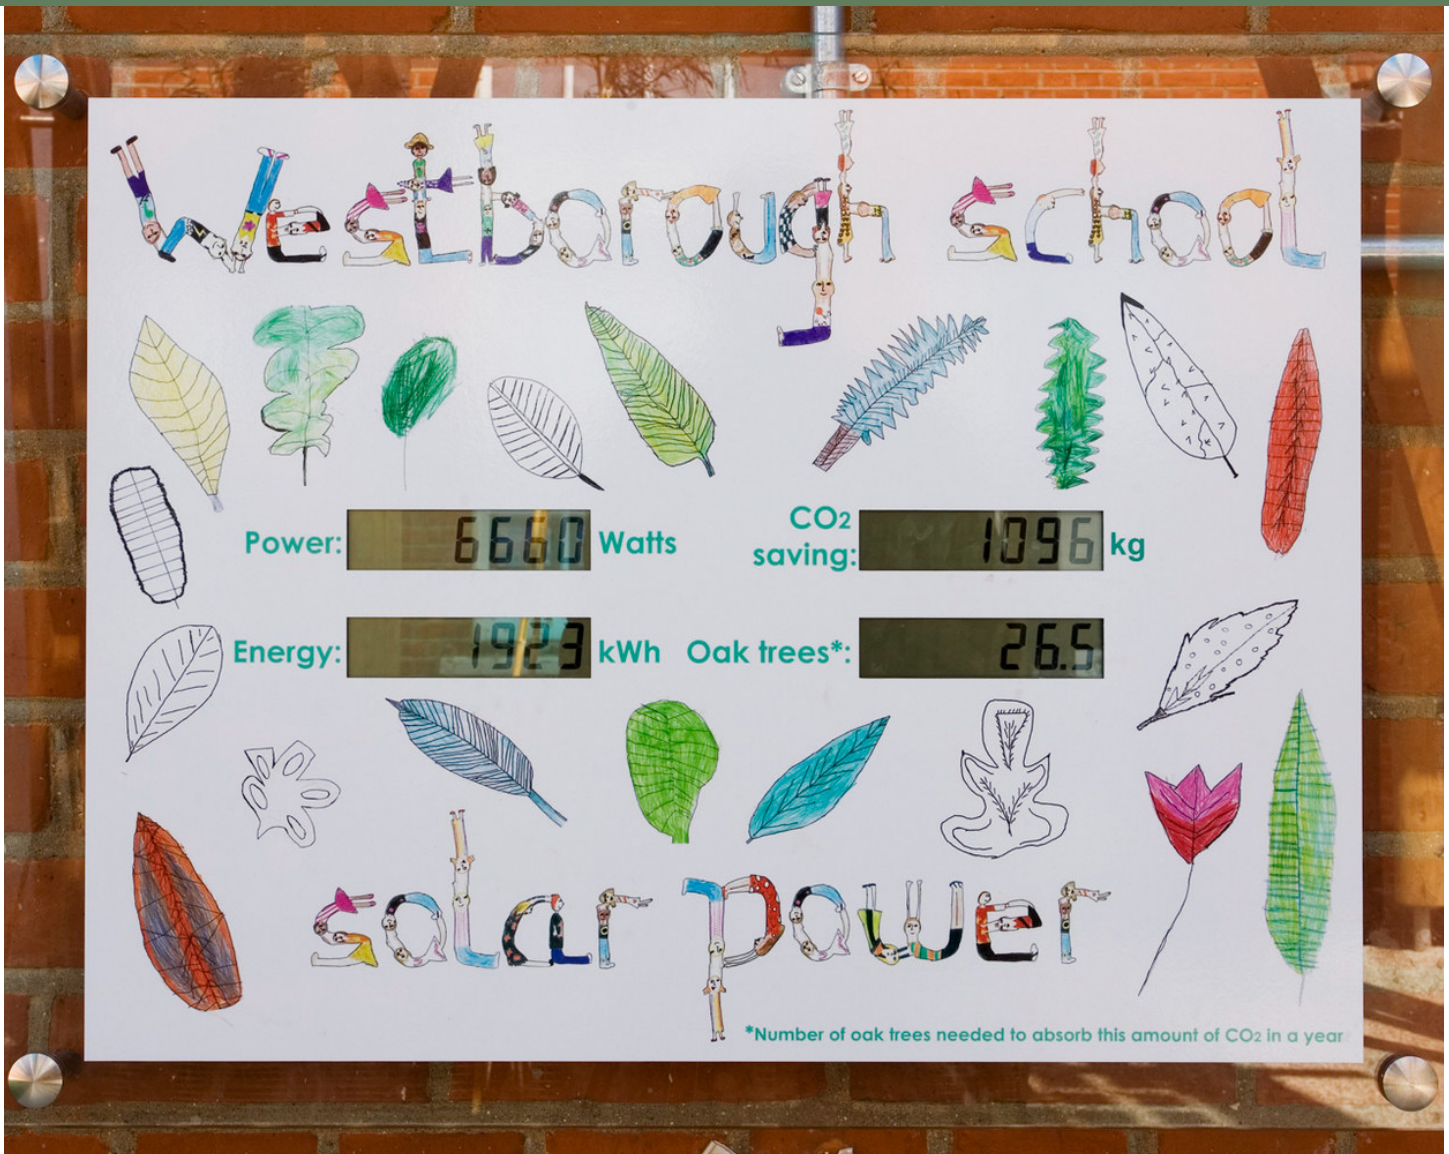 Westborough school
Power: 6660 Watts
CO2 saving: 1096 kg
Energy: 1923 kWh
Oak trees*: 26.5
solar power
*Number of oak trees needed to absorb this amount of CO2 in a year